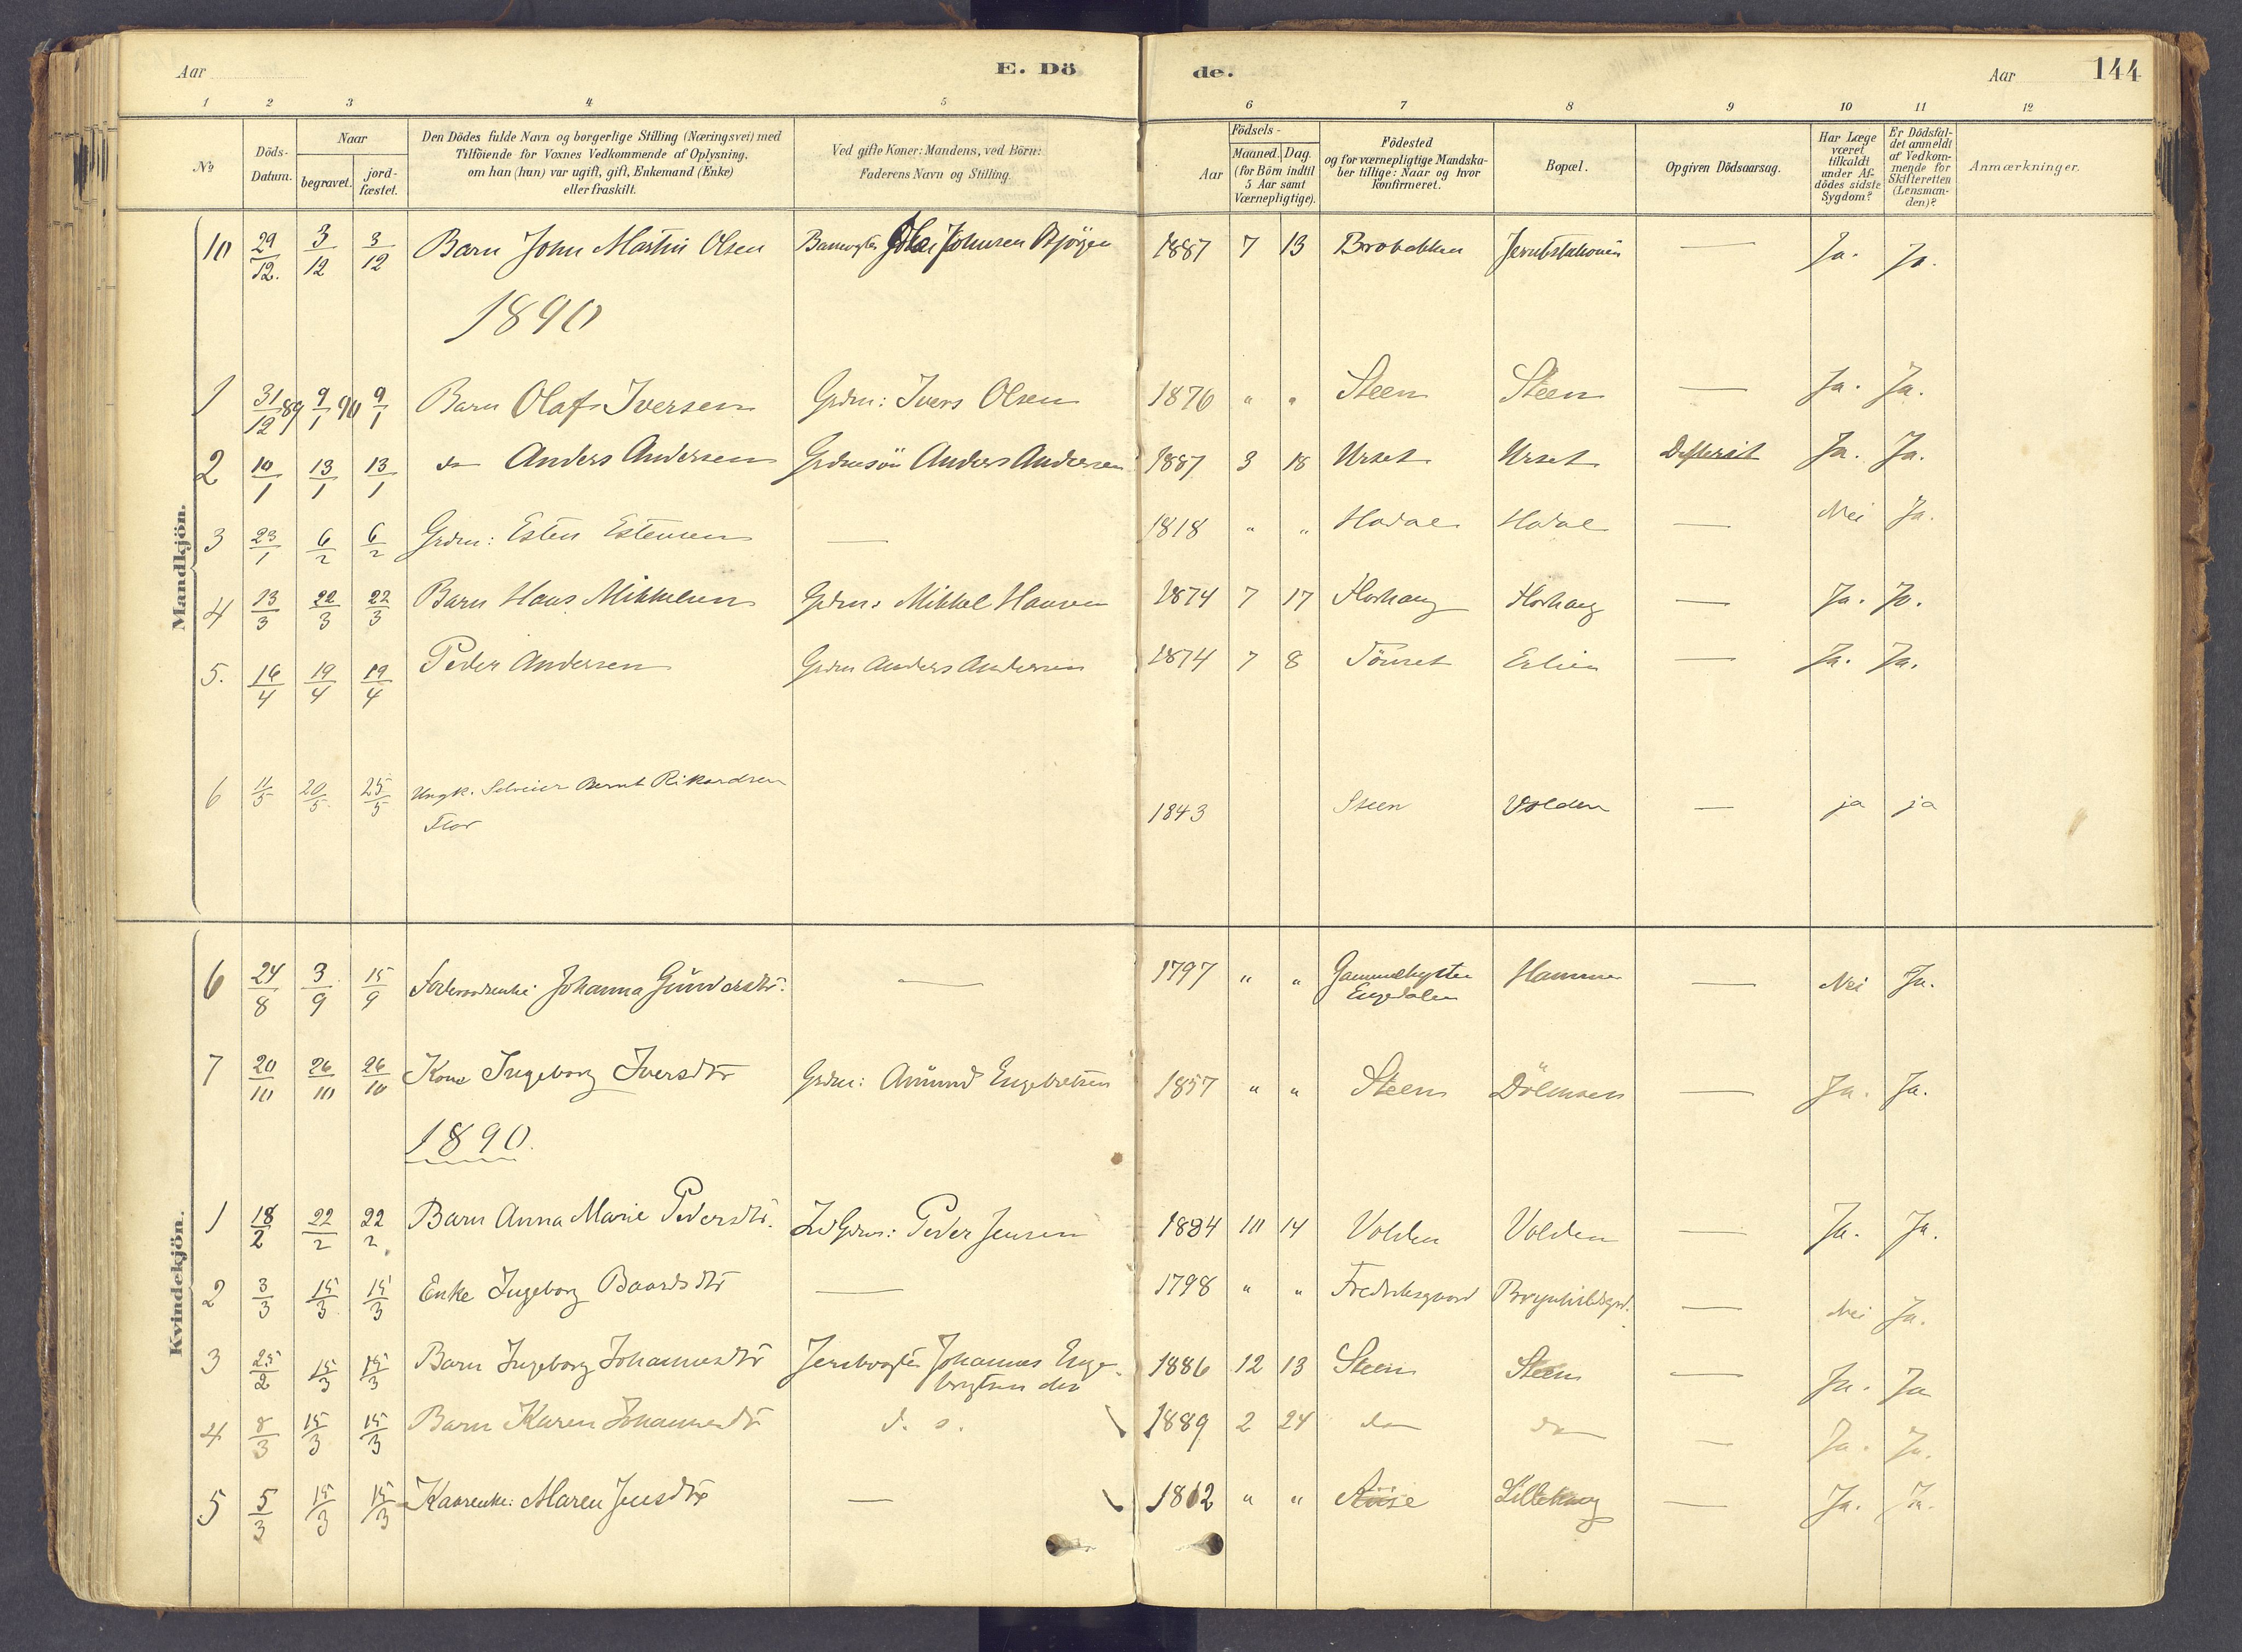 Aar
E. Dö
de.
Aar
144
1 2 3 4 5 6 7 8 9 10 11 12
No
Döds-
Datum.
Naar
begravet.
jord-
fæstet.
Den Dödes fulde Navn og borgerlige Stilling (Næringsvei) med
Tilföiende for Voxnes Vedkommende af Oplysning,
om han (hun) var ugift, gift, Enkemand (Enke)
eller fraskilt.
Ved gifte Koner: Mandens, ved Börn:
Faderens Navn og Stilling.
Födsels-
Aar
Maaned. Dag.
(for Börn indtil
5 Aar samt
Værnepligtige).
Födested
og for værnepligtige Mandska-
ber tillige: Naar og hvor
konfirmeret.
Bopæl.
Opgiven Dödsaarsag.
Har Læge
været
tilkaldt
under Af-
dödes sidste
Sygdom?
Er Dödsfal-
det anmeldt
af Vedkom-
mende for
Skifteretten
(Lensman-
den)?
Anmærkninger.
Mandkjön.
10 29/12. 3/12 3/12 Barn John Martin Olsen Banevogter Ole Johnsen Bjørgen 1887 7 13 Brobakken Jernbstationen — Ja. Ja.
1890
1 31/12 89 9/1 90 9/1 Barn Olaf Iversen Grdm: Ivers Olsen 1876 " " Steen Steen — Ja. Ja.
2 10/1 13/1 13/1 do Anders Andersen Grdmsön Anders Andersen 1887 3 18 Urset Urset Difterit Ja. Ja.
3 23/1 6/2 6/2 Grdm: Esten Estensen — 1818 " " Hodal Hodal — Nei Ja.
4 13/3 22/3 22/3 Barn Hans Mikkelsen Grdm: Mikkel Hansen 1874 7 17 Horhaug Horhaug — Ja. Ja.
5. 16/4 19/4 19/4 Peder Andersen Grdm Anders Andersen 1874 7 8 Tönset Erlien — Ja. Ja.
6 11/5 20/5 25/5 Ungk. Selveier Bernt Rikardsen
Flor 1843 Steen Volden — ja ja
Kvindekjön.
6 24/8 3/9 15/9 Johanna Gundersdtr. — 1797 " "
Engedalen Hammer — Nei Ja.
7 20/10 26/10 26/10 Kone Ingeborg Iversdtr Grdm: Amund Engebretsen 1857 " " Steen Dölmoen — Ja. Ja.
1890.
1 18/2 22/2 22/2 Barn Anna Marie Pedersdtr. Grdm: Peder Jensen 1884 10 14 Volden Volden — Ja. Ja.
2 3/3 15/3 15/3 Enke Ingeborg Baardsdtr — 1798 " " Fredriksgaard Brynhildsgrd. — Nei Ja.
3 25/2 15/3 15/3 Barn Ingeborg Johannesdtr Johannes Enge-
brytsen 1886 12 13 Steen Steen — Ja. Ja
4 8/3 15/3 15/3 Barn Karen Johannesdtr d. o. 1889 2 24 do do — Ja. Ja.
5 5/3 15/3 15/3 Kaarenke: Maren Jensdtr — 1812 " " Lillehaug — Ja. Ja.